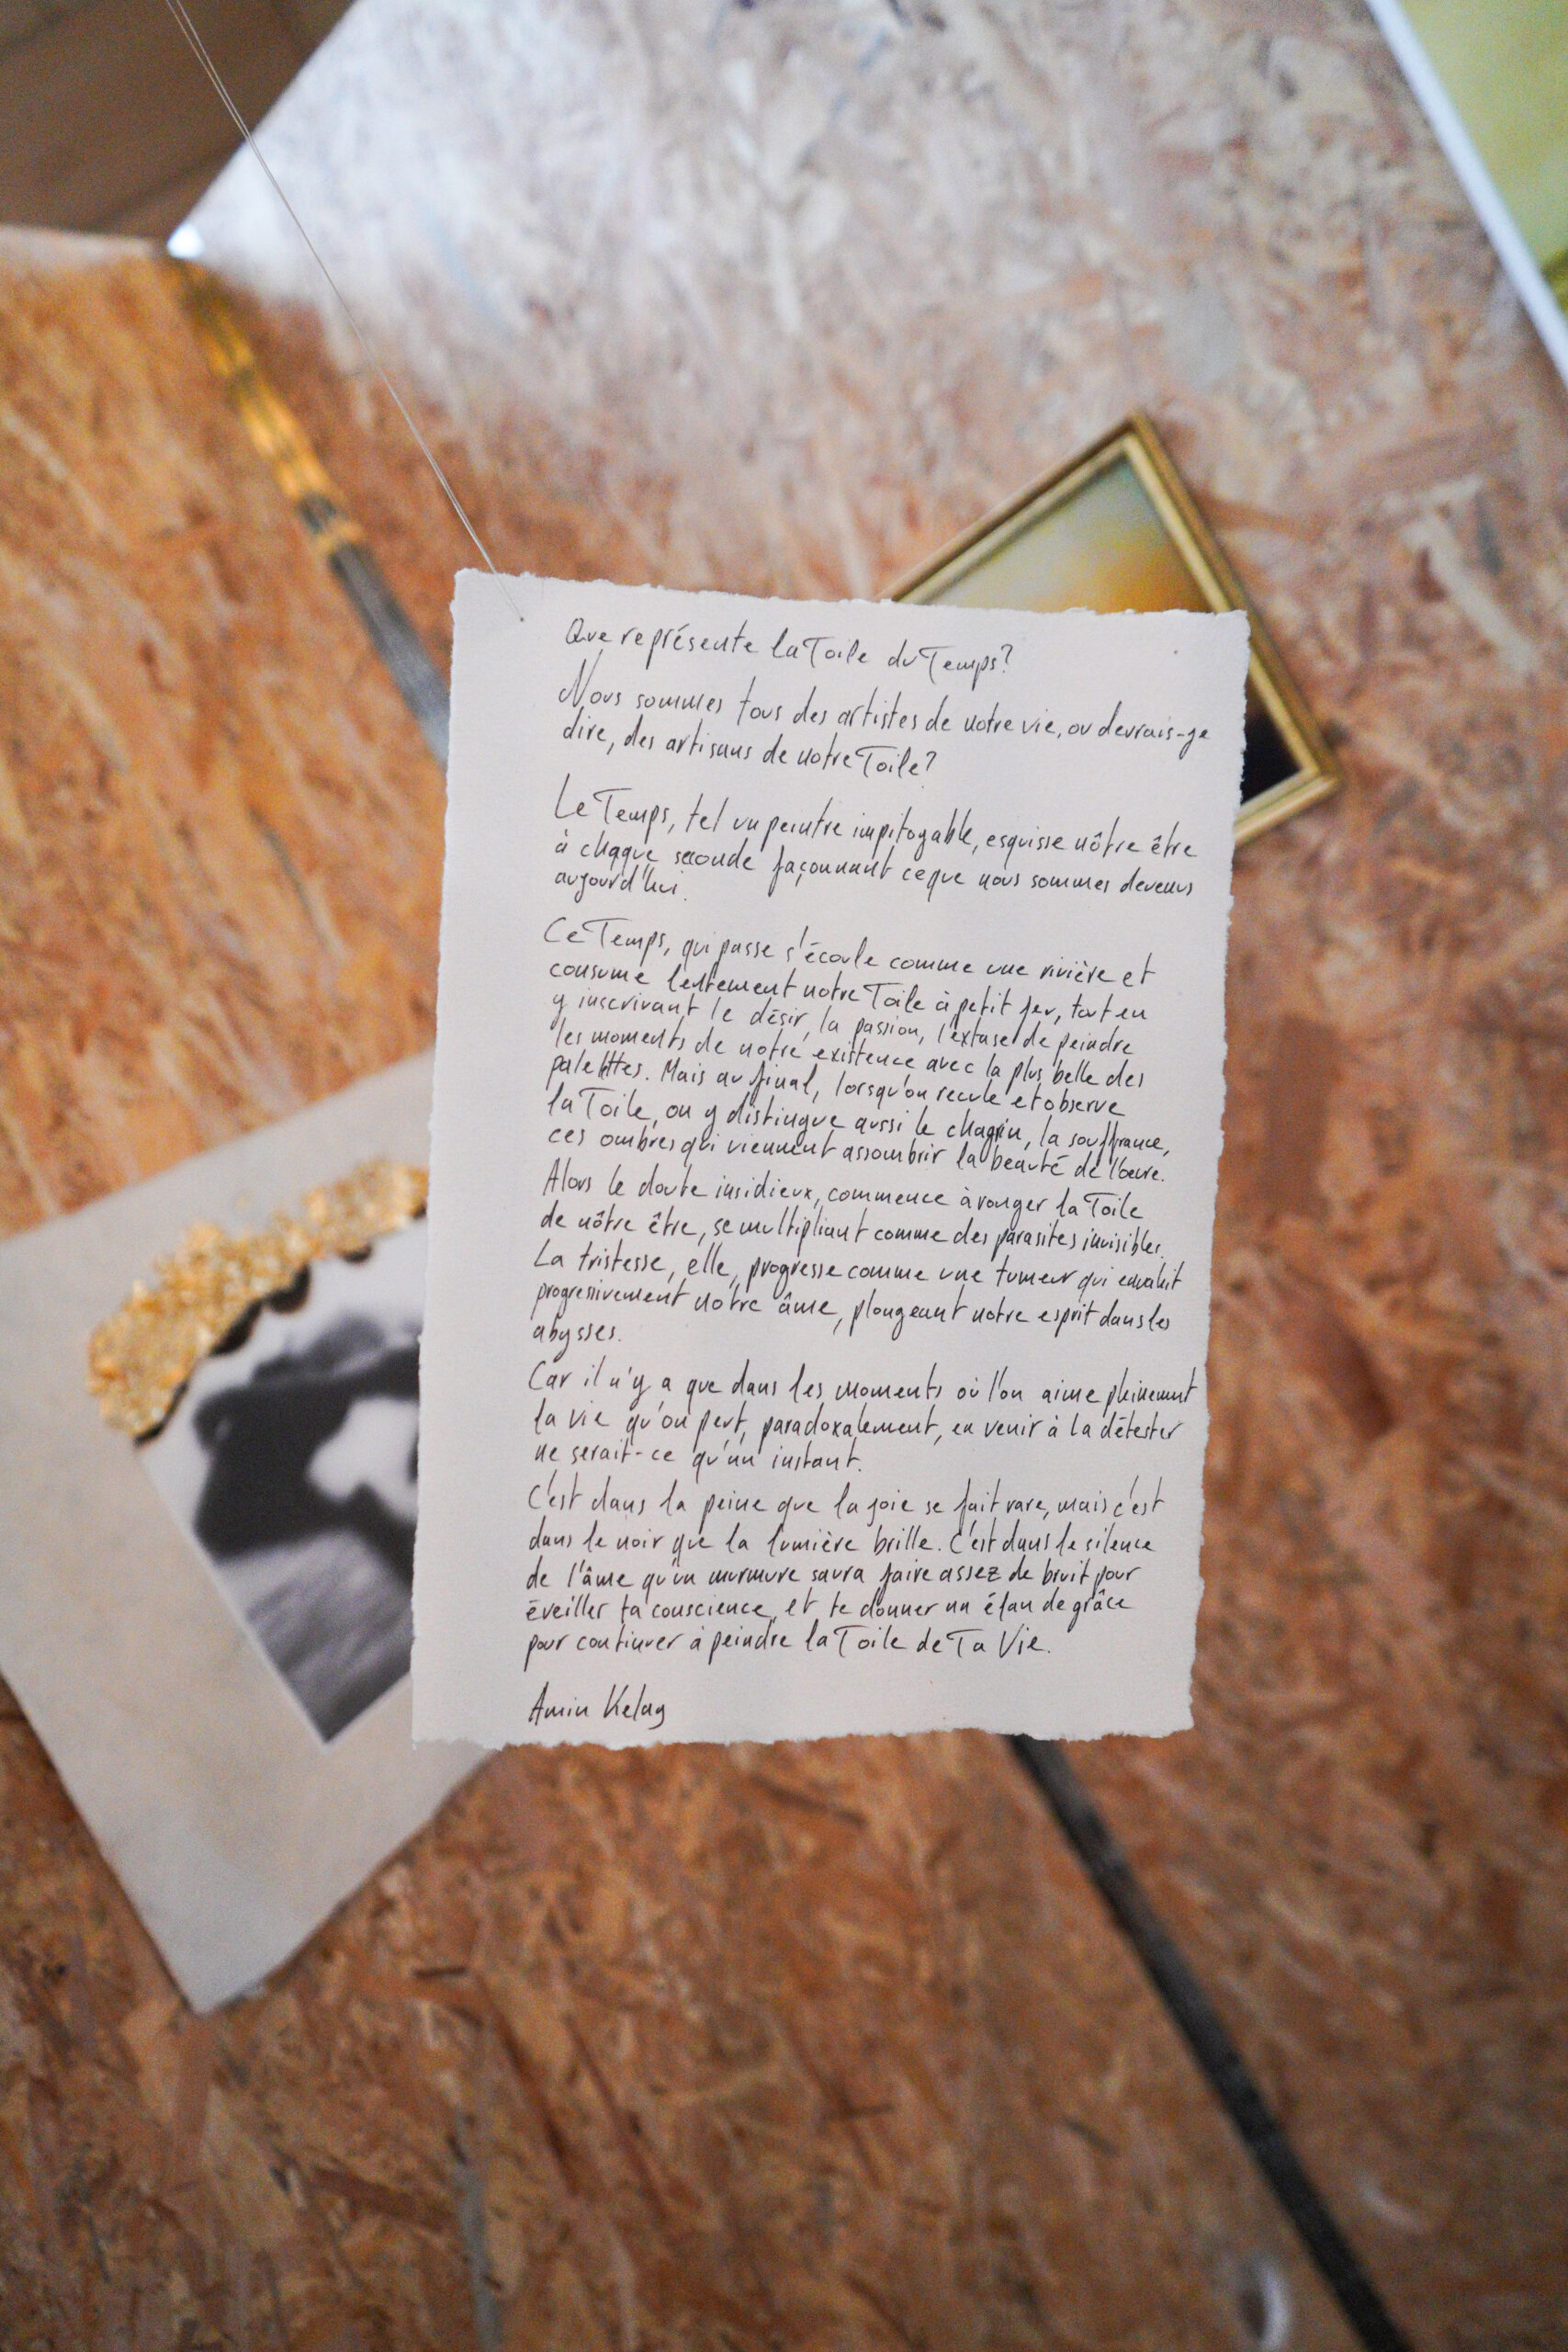 Que représente la Toile du Temps?
Nous sommes tous des artistes de notre vie, ou devrais-je
dire, des artisans de notre Toile?
Le Temps, tel un peintre impitoyable, esquisse nôtre être
à chaque seconde façonnant ce que nous sommes devenus
aujourd'hui.
Ce Temps, qui passe s'écoule comme une rivière et
consume lentement notre Toile à petit feu, tout en
y inscrivant le désir, la passion, l'extase de peindre
les moments de notre existence avec la plus belle des
palettes. Mais au final, lorsqu'on recule et observe
la Toile, on y distingue aussi le chagrin, la souffrance,
ces ombres qui viennent assombrir la beauté de l'œuvre.
Alors le doute insidieux, commence à ronger la Toile
de nôtre être, se multipliant comme des parasites invisibles.
La tristesse, elle, progresse comme une tumeur qui envahit
progressivement notre âme, plongeant notre esprit dans les
abysses.
Car il n'y a que dans les moments où l'on aime pleinement
la vie qu'on peut, paradoxalement, en venir à la détester
ne serait-ce qu'un instant.
C'est dans la peine que la joie se fait rare, mais c'est
dans le noir que la lumière brille. C'est dans le silence
de l'âme qu'un murmure saura faire assez de bruit pour
éveiller ta conscience, et te donner un élan de grâce
pour continuer à peindre la Toile de Ta Vie.
Amin Kelag